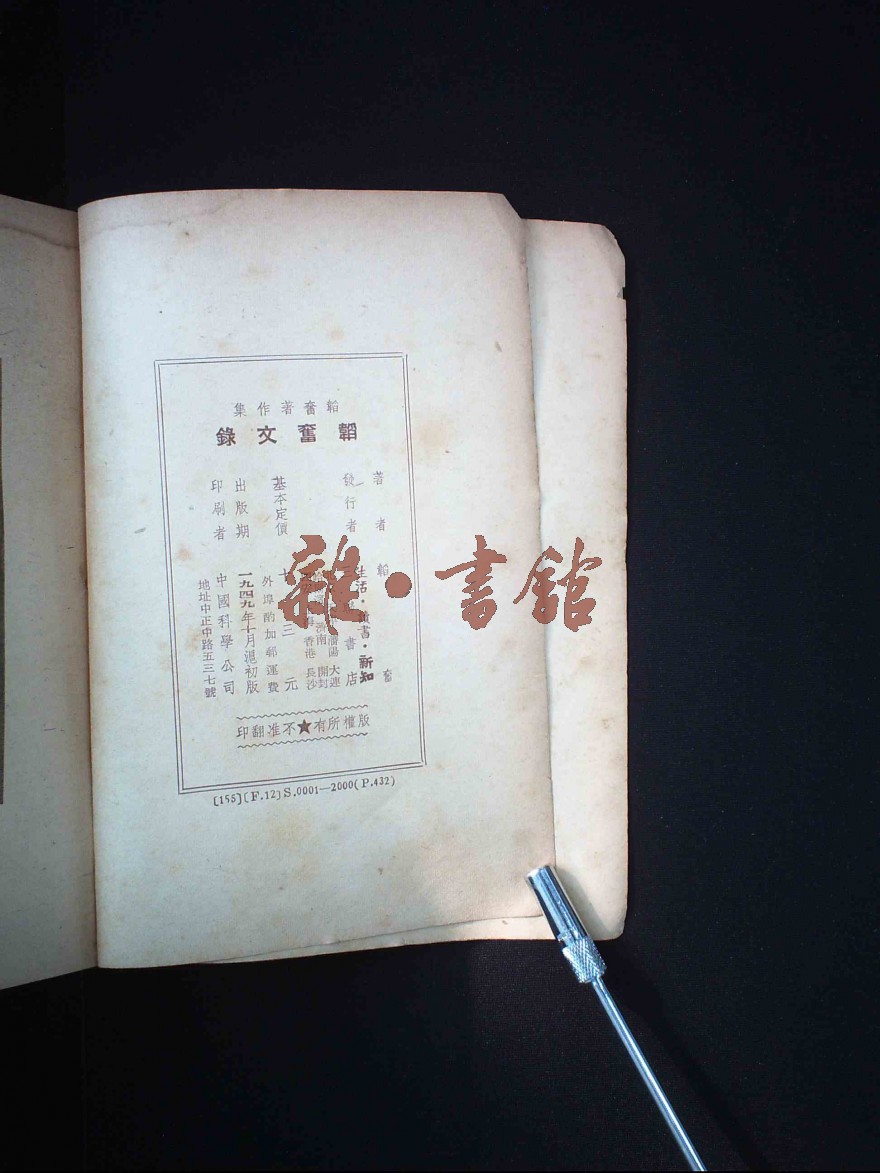 韜奮著作集
韜奮文錄
著者 韜奮
發行者 生活·讀書·新知
書店
瀋陽 大連
濟南 開封
香港 長沙
基本定價 十三元
外埠酌加郵運費
出版期 一九四九年十月滬初版
印刷者 中國科學公司
地址中正中路五三七號
版權所有★不准翻印
[155](F.12)S.0001—2000(P.432)
雜·書館